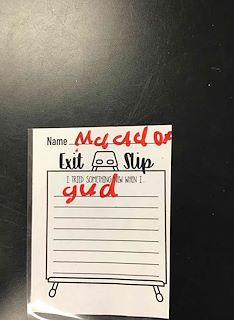 Name
Exit Slip
I TRIED SOMETHING NEW WHEN I...
gud